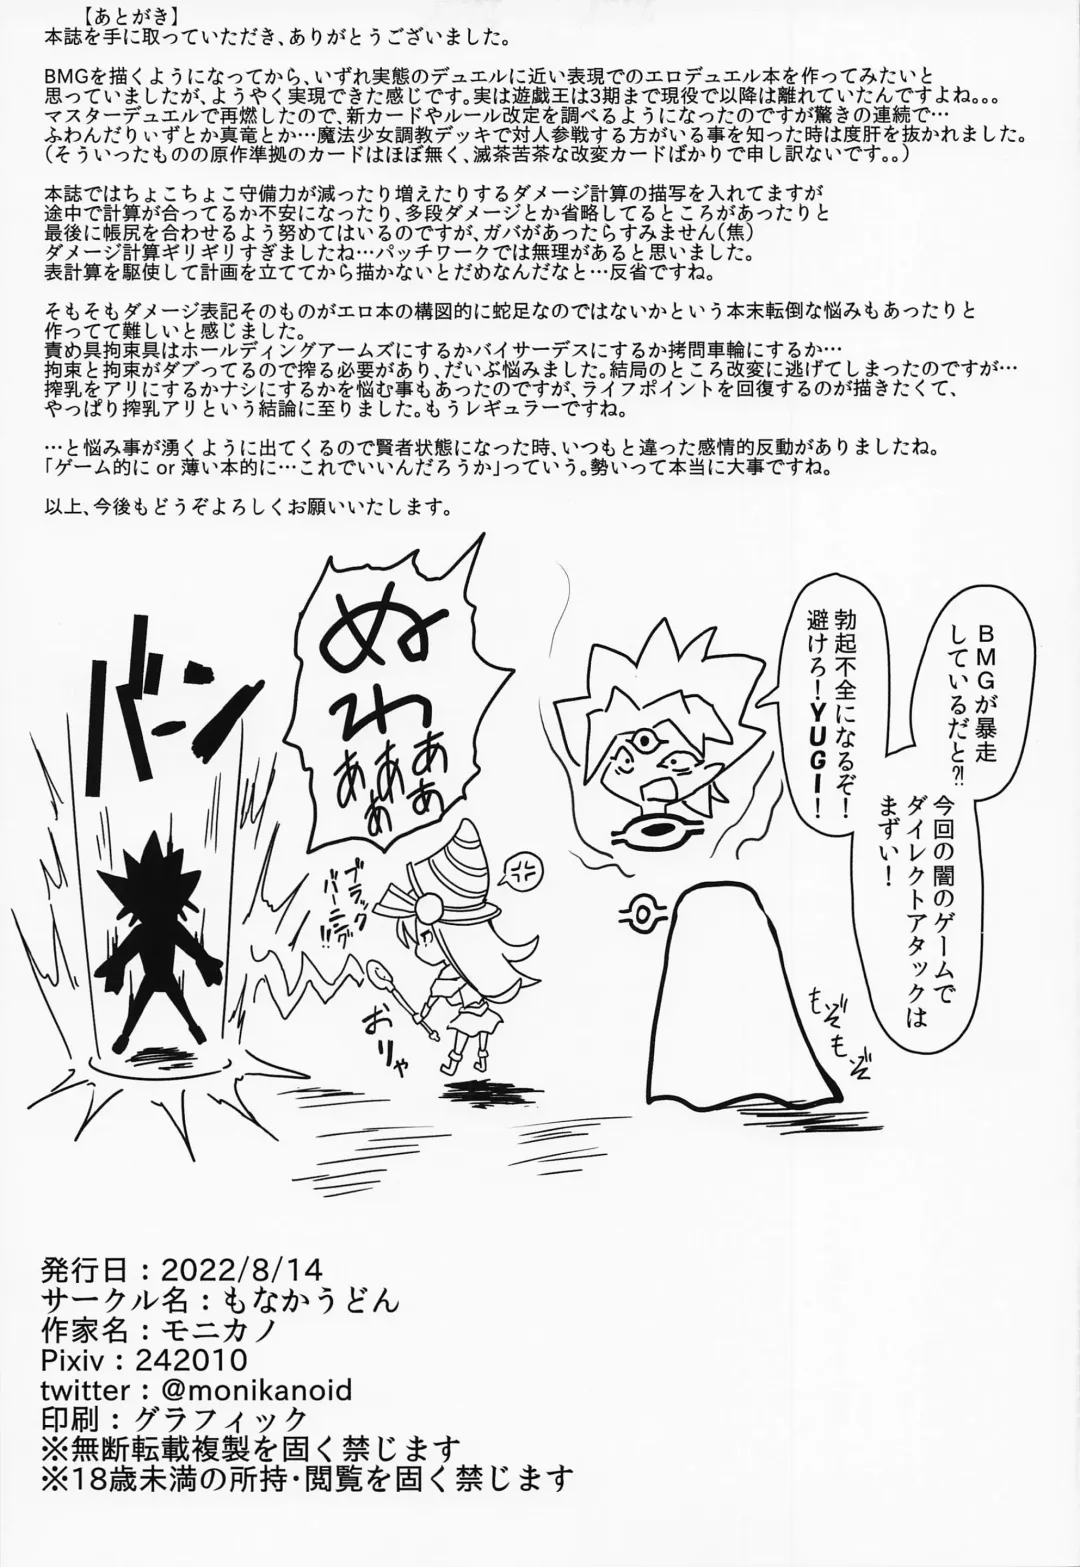 【あとがき】
本誌を手に取っていただき、ありがとうございました。
BMGを描くようになってから、いずれ実態のデュエルに近い表現でのエロデュエル本を作ってみたいと
思っていましたが、ようやく実現できた感じです。実は遊戯王は3期まで現役で以降は離れていたんですよね。。。
マスターデュエルで再燃したので、新カードやルール改定を調べるようになったのですが驚きの連続で…
ふわんだりぃずとか真竜とか…魔法少女調教デッキで対人参戦する方がいる事を知った時は度肝を抜かれました。
（そういったものの原作準拠のカードはほぼ無く、滅茶苦茶な改変カードばかりで申し訳ないです。。）
本誌ではちょこちょこ守備力が減ったり増えたりするダメージ計算の描写を入れてますが
途中で計算が合ってるか不安になったり、多段ダメージとか省略してるところがあったりと
最後に帳尻を合わせるよう努めてはいるのですが、ガバがあったらすみません（焦）
ダメージ計算ギリギリすぎましたね…パッチワークでは無理があると思いました。
表計算を駆使して計画を立ててから描かないとだめなんだなと…反省ですね。
そもそもダメージ表記そのものがエロ本の構図的に蛇足なのではないかという本末転倒な悩みもあったりと
作ってて難しいと感じました。
責め具拘束具はホールディングアームズにするかバイサーデスにするか拷問車輪にするか…
拘束と拘束がダブってるので搾る必要があり、だいぶ悩みました。結局のところ改変に逃げてしまったのですが…
搾乳をアリにするかナシにするかを悩む事もあったのですが、ライフポイントを回復するのが描きたくて、
やっぱり搾乳アリという結論に至りました。もうレギュラーですね。
…と悩み事が湧くように出てくるので賢者状態になった時、いつもと違った感情的反動がありましたね。
「ゲーム的に or 薄い本的に…これでいいんだろうか」っていう。勢いって本当に大事ですね。
以上、今後もどうぞよろしくお願いいたします。
BMGが暴走
しているだと?!
今回の闇のゲームで
ダイレクトアタックは
まずい！
勃起不全になるぞ！
避けろ！YUGI！
ぬ
わ
ああ
ああ
ああ
バーン
ブラック
バーニング!!
おりゃ
もぞ
もぞ
発行日：2022/8/14
サークル名：もなかうどん
作家名：モニカノ
Pixiv：242010
twitter：@monikanoid
印刷：グラフィック
※無断転載複製を固く禁じます
※18歳未満の所持・閲覧を固く禁じます